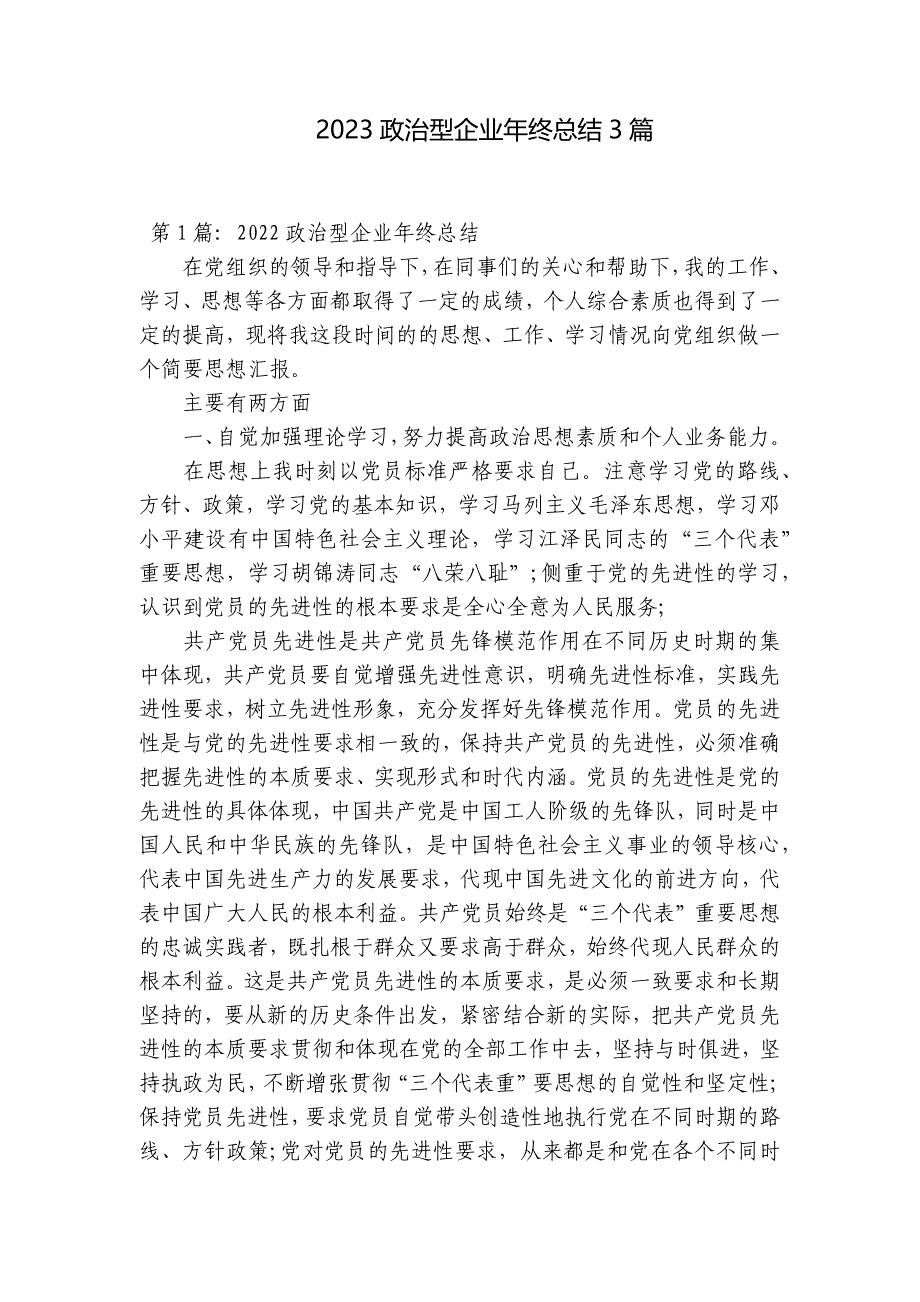 2023 政治型企业年终总结 3 篇
第 1 篇: 2022 政治型企业年终总结
在党组织的领导和指导下,在同事们的关心和帮助下,我的工作、
学习、思想等各方面都取得了一定的成绩,个人综合素质也得到了一
定的提高,现将我这段时间的的思想、工作、学习情况向党组织做一
个简要思想汇报。
主要有两方面
一、自觉加强理论学习,努力提高政治思想素质和个人业务能力。
在思想上我时刻以党员标准严格要求自己。注意学习党的路线、
方针、政策,学习党的基本知识,学习马列主义毛泽东思想,学习邓
小平建设有中国特色社会主义理论,学习江泽民同志的“三个代表”
重要思想,学习胡锦涛同志“八荣八耻”;侧重于党的先进性的学习,
认识到党员的先进性的根本要求是全心全意为人民服务;
共产党员先进性是共产党员先锋模范作用在不同历史时期的集
中体现,共产党员要自觉增强先进性意识,明确先进性标准,实践先
进性要求,树立先进性形象,充分发挥好先锋模范作用。党员的先进
性是与党的先进性要求相一致的,保持共产党员的先进性,必须准确
把握先进性的本质要求、实现形式和时代内涵。党员的先进性是党的
先进性的具体体现,中国共产党是中国工人阶级的先锋队,同时是中
国人民和中华民族的先锋队,是中国特色社会主义事业的领导核心,
代表中国先进生产力的发展要求,代现中国先进文化的前进方向,代
表中国广大人民的根本利益。共产党员始终是“三个代表”重要思想
的忠诚实践者,既扎根于群众又要求高于群众,始终代现人民群众的
根本利益。这是共产党员先进性的本质要求,是必须一致要求和长期
坚持的,要从新的历史条件出发,紧密结合新的实际,把共产党员先
进性的本质要求贯彻和体现在党的全部工作中去,坚持与时俱进,坚
持执政为民,不断增张贯彻“三个代表重”要思想的自觉性和坚定性;
保持党员先进性,要求党员自觉带头创造性地执行党在不同时期的路
线、方针政策;党对党员的先进性要求,从来都是和党在各个不同时